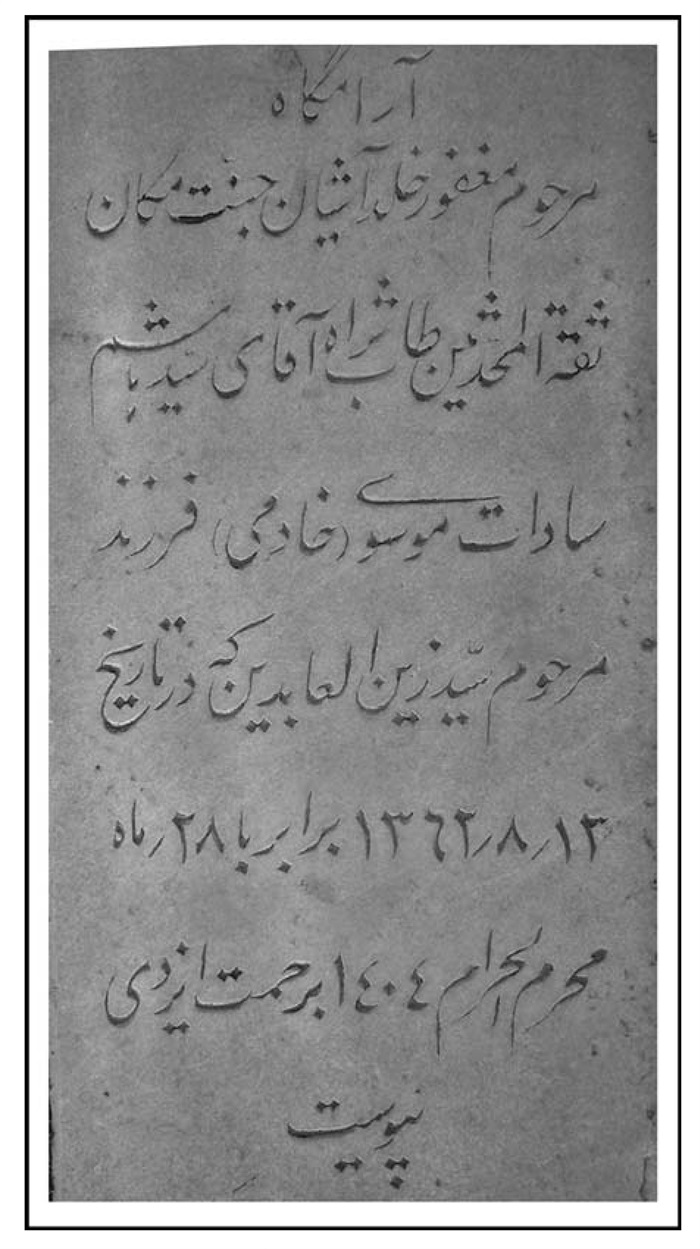 آرامگاه
مرحوم مغفور خلد آشیان جنت مکان
ثقة المحدّثین طاب ثراه آقای سیّد هاشم
سادات موسوی (خادمی) فرزند
مرحوم سیّد زین العابدین که در تاریخ
۱۳٫۸٫۱۳۶۲ برابر با ۲۸٫ماه
محرم الحرام ۱۴۰۴ برحمت ایزدی
پیوست